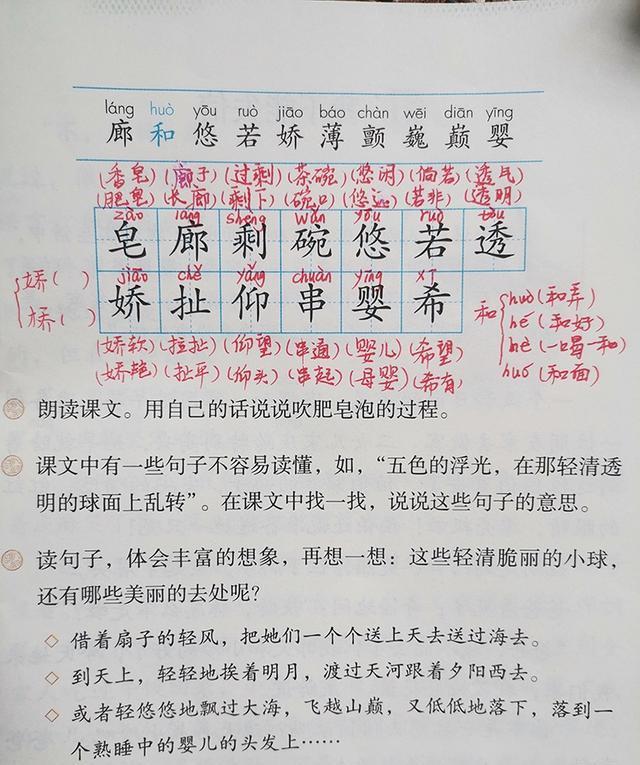 láng huò yōu ruò jiāo báo chàn wēi diān yīng
廊 和 悠 若 娇 薄 颤 巍 巅 婴
(香皂)(廊子)(过剩)(茶碗)(悠闲)(倘若)(透气)
(肥皂)(长廊)(剩下)(碗口)(悠远)(若非)(透明)
zào láng shèng wǎn yōu ruò tòu
皂 廊 剩 碗 悠 若 透
jiāo chě yǎng chuàn yīng xī
娇 扯 仰 串 婴 希
娇( )
桥( )
和
huò(和弄)
hé(和好)
hè(一唱一和)
huó(和面)
(娇软)(拉扯)(仰望)(串通)(婴儿)(希望)
(娇艳)(扯平)(仰头)(串起)(母婴)(希有)
朗读课文。用自己的话说说吹肥皂泡的过程。
课文中有一些句子不容易读懂，如，“五色的浮光，在那轻清透
明的球面上乱转”。在课文中找一找，说说这些句子的意思。
读句子，体会丰富的想象，再想一想：这些轻清脆丽的小球，
还有哪些美丽的去处呢？
◇ 借着扇子的轻风，把她们一个个送上天去送过海去。
◇ 到天上，轻轻地挨着明月，渡过天河跟着夕阳西去。
◇ 或者轻悠悠地飘过大海，飞越山巅，又低低地落下，落到一
个熟睡中的婴儿的头发上……